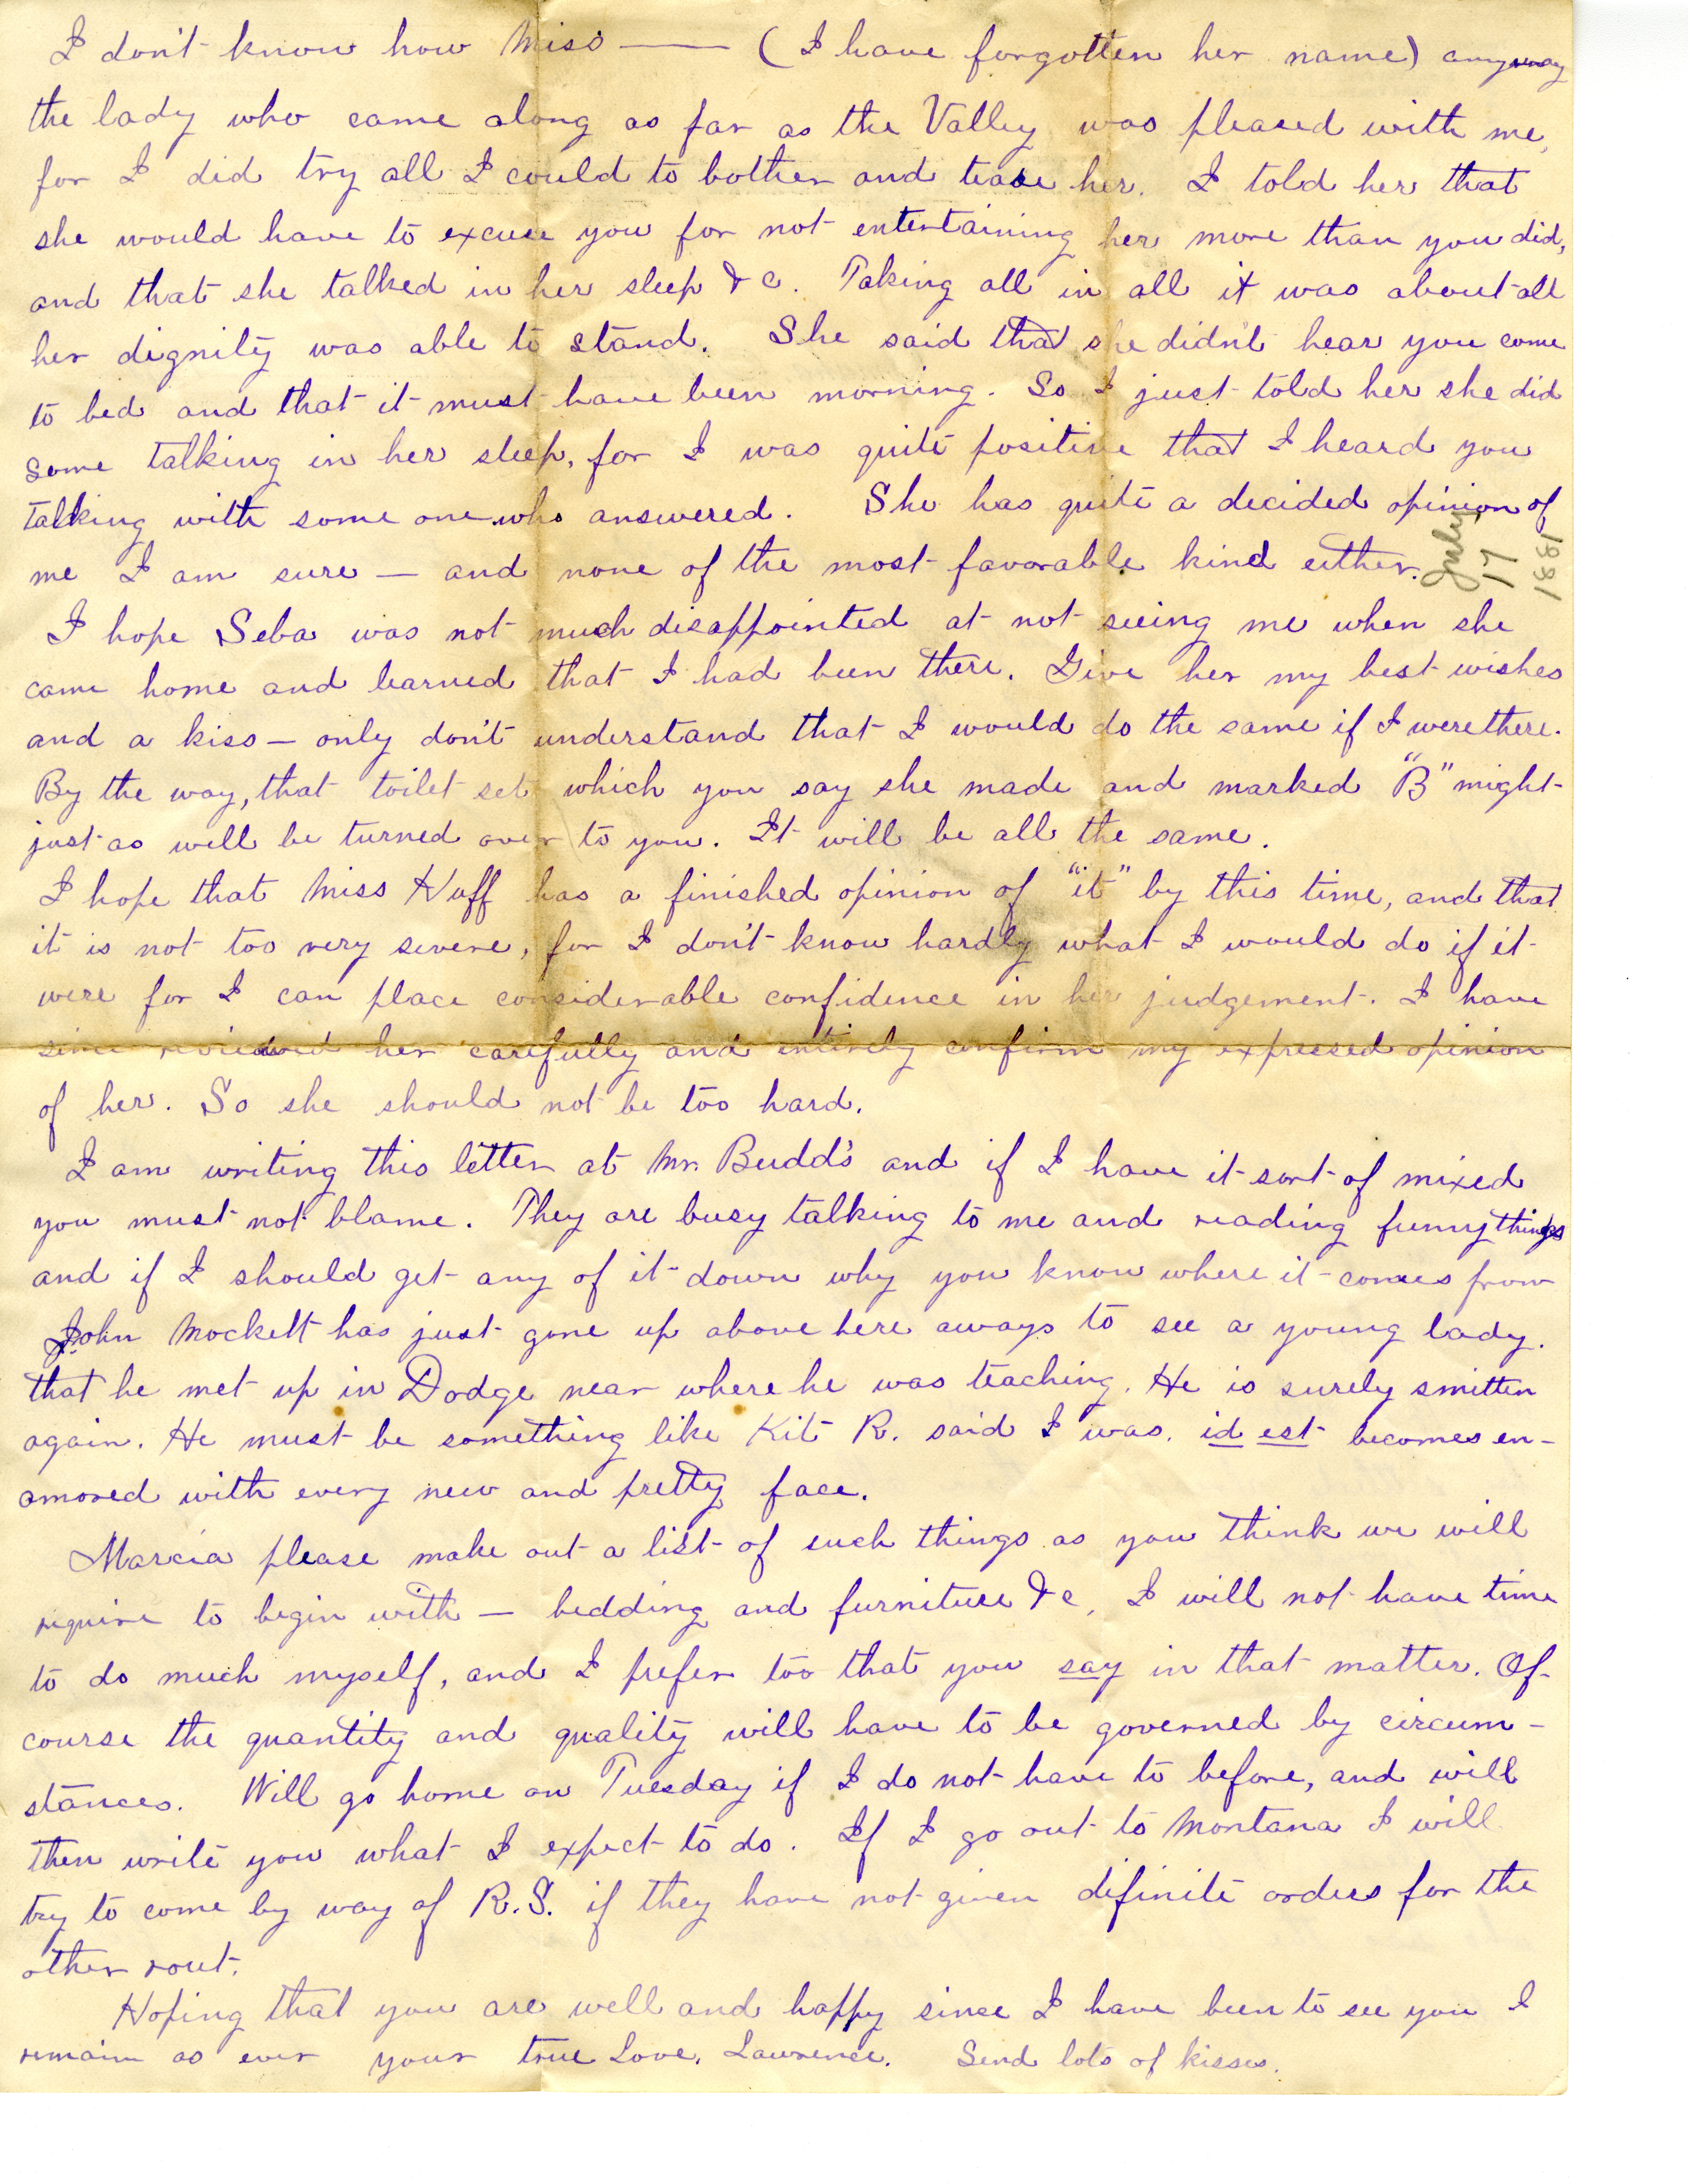 I don't know how Miss —— (I have forgotten her name) anyway
the lady who came along as far as the Valley was pleased with me,
for I did try all I could to bother and tease her. I told her that
she would have to excuse you for not entertaining her more than you did,
and that she talked in her sleep &c. Taking all in all it was about all
her dignity was able to stand. She said that she didn't hear you come
to bed and that it must have been morning. So I just told her she did
some talking in her sleep, for I was quite positive that I heard you
talking with some one who answered. She has quite a decided opinion of
me I am sure — and none of the most favorable kind either.
July
17
1881
I hope Seba was not much disappointed at not seeing me when she
came home and learned that I had been there. Give her my best wishes
and a kiss — only don't understand that I would do the same if I were there.
By the way, that toilet set which you say she made and marked "B" might
just as well be turned over to you. It will be all the same.
I hope that Miss Huff has a finished opinion of "it" by this time, and that
it is not too very severe, for I don't know hardly what I would do if it
were for I can place considerable confidence in her judgement. I have
since reviewed her carefully and entirely confirm my expressed opinion
of her. So she should not be too hard.
I am writing this letter at Mr. Budd's and if I have it sort of mixed
you must not blame. They are busy talking to me and reading funny things
and if I should get any of it down why you know where it comes from
John Mockett has just gone up above here aways to see a young lady.
that he met up in Dodge near where he was teaching. He is surely smitten
again. He must be something like Kit R. said I was. id est becomes en-
amored with every new and pretty face.
Marcia please make out a list of such things as you think we will
require to begin with — bedding and furniture &c, I will not have time
to do much myself, and I prefer too that you say in that matter. Of
course the quantity and quality will have to be governed by circum-
stances. Will go home on Tuesday if I do not have to before, and will
then write you what I expect to do. If I go out to Montana I will
try to come by way of R.S. if they have not given difinite orders for the
other rout.
Hoping that you are well and happy since I have been to see you I
remain as ever your true Love, Lawrence. Send lots of kisses.